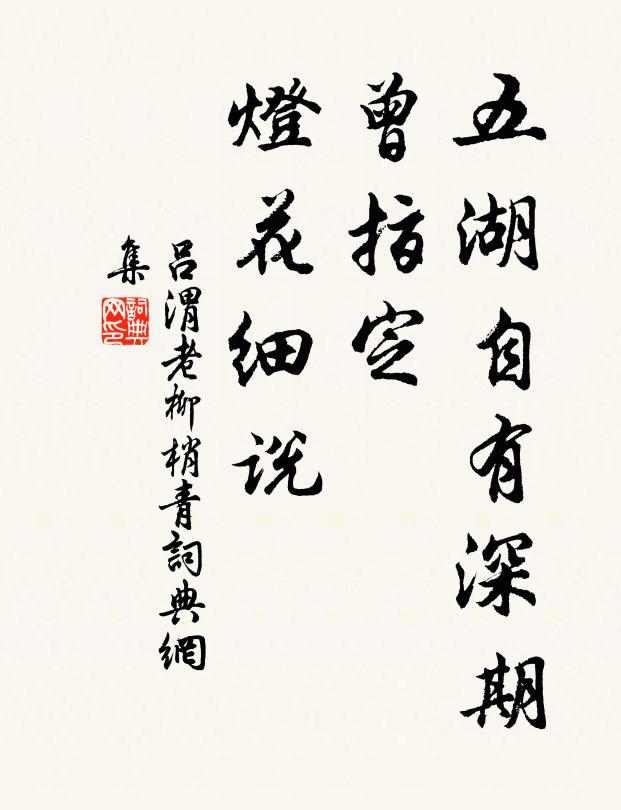 五湖自有深期
曾指定
燈花细说
吕渭老柳梢青詞典網
集
詞典网印